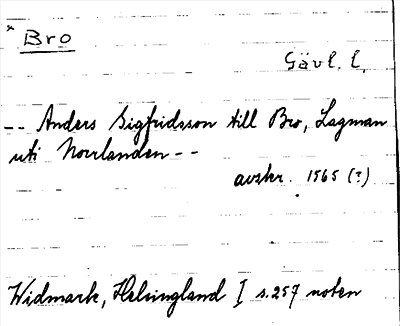 * Bro
Gävl. l.
-- Anders Sigfridsson till Bro, Lagman
uti Norrlanden --
avskr. 1565 (?)
Widmark, Helsingland I s. 257 noten